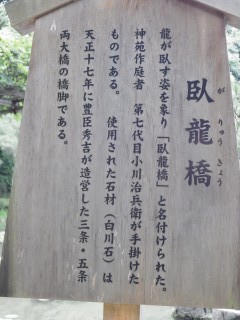 臥龍橋
がりゅうきょう
龍が臥す姿を象り「臥龍橋」と名付けられた。
神苑作庭者 第七代目小川治兵衛が手掛けた
ものである。 使用された石材(白川石)は
天正十七年に豊臣秀吉が造営した三条・五条
両大橋の橋脚である。